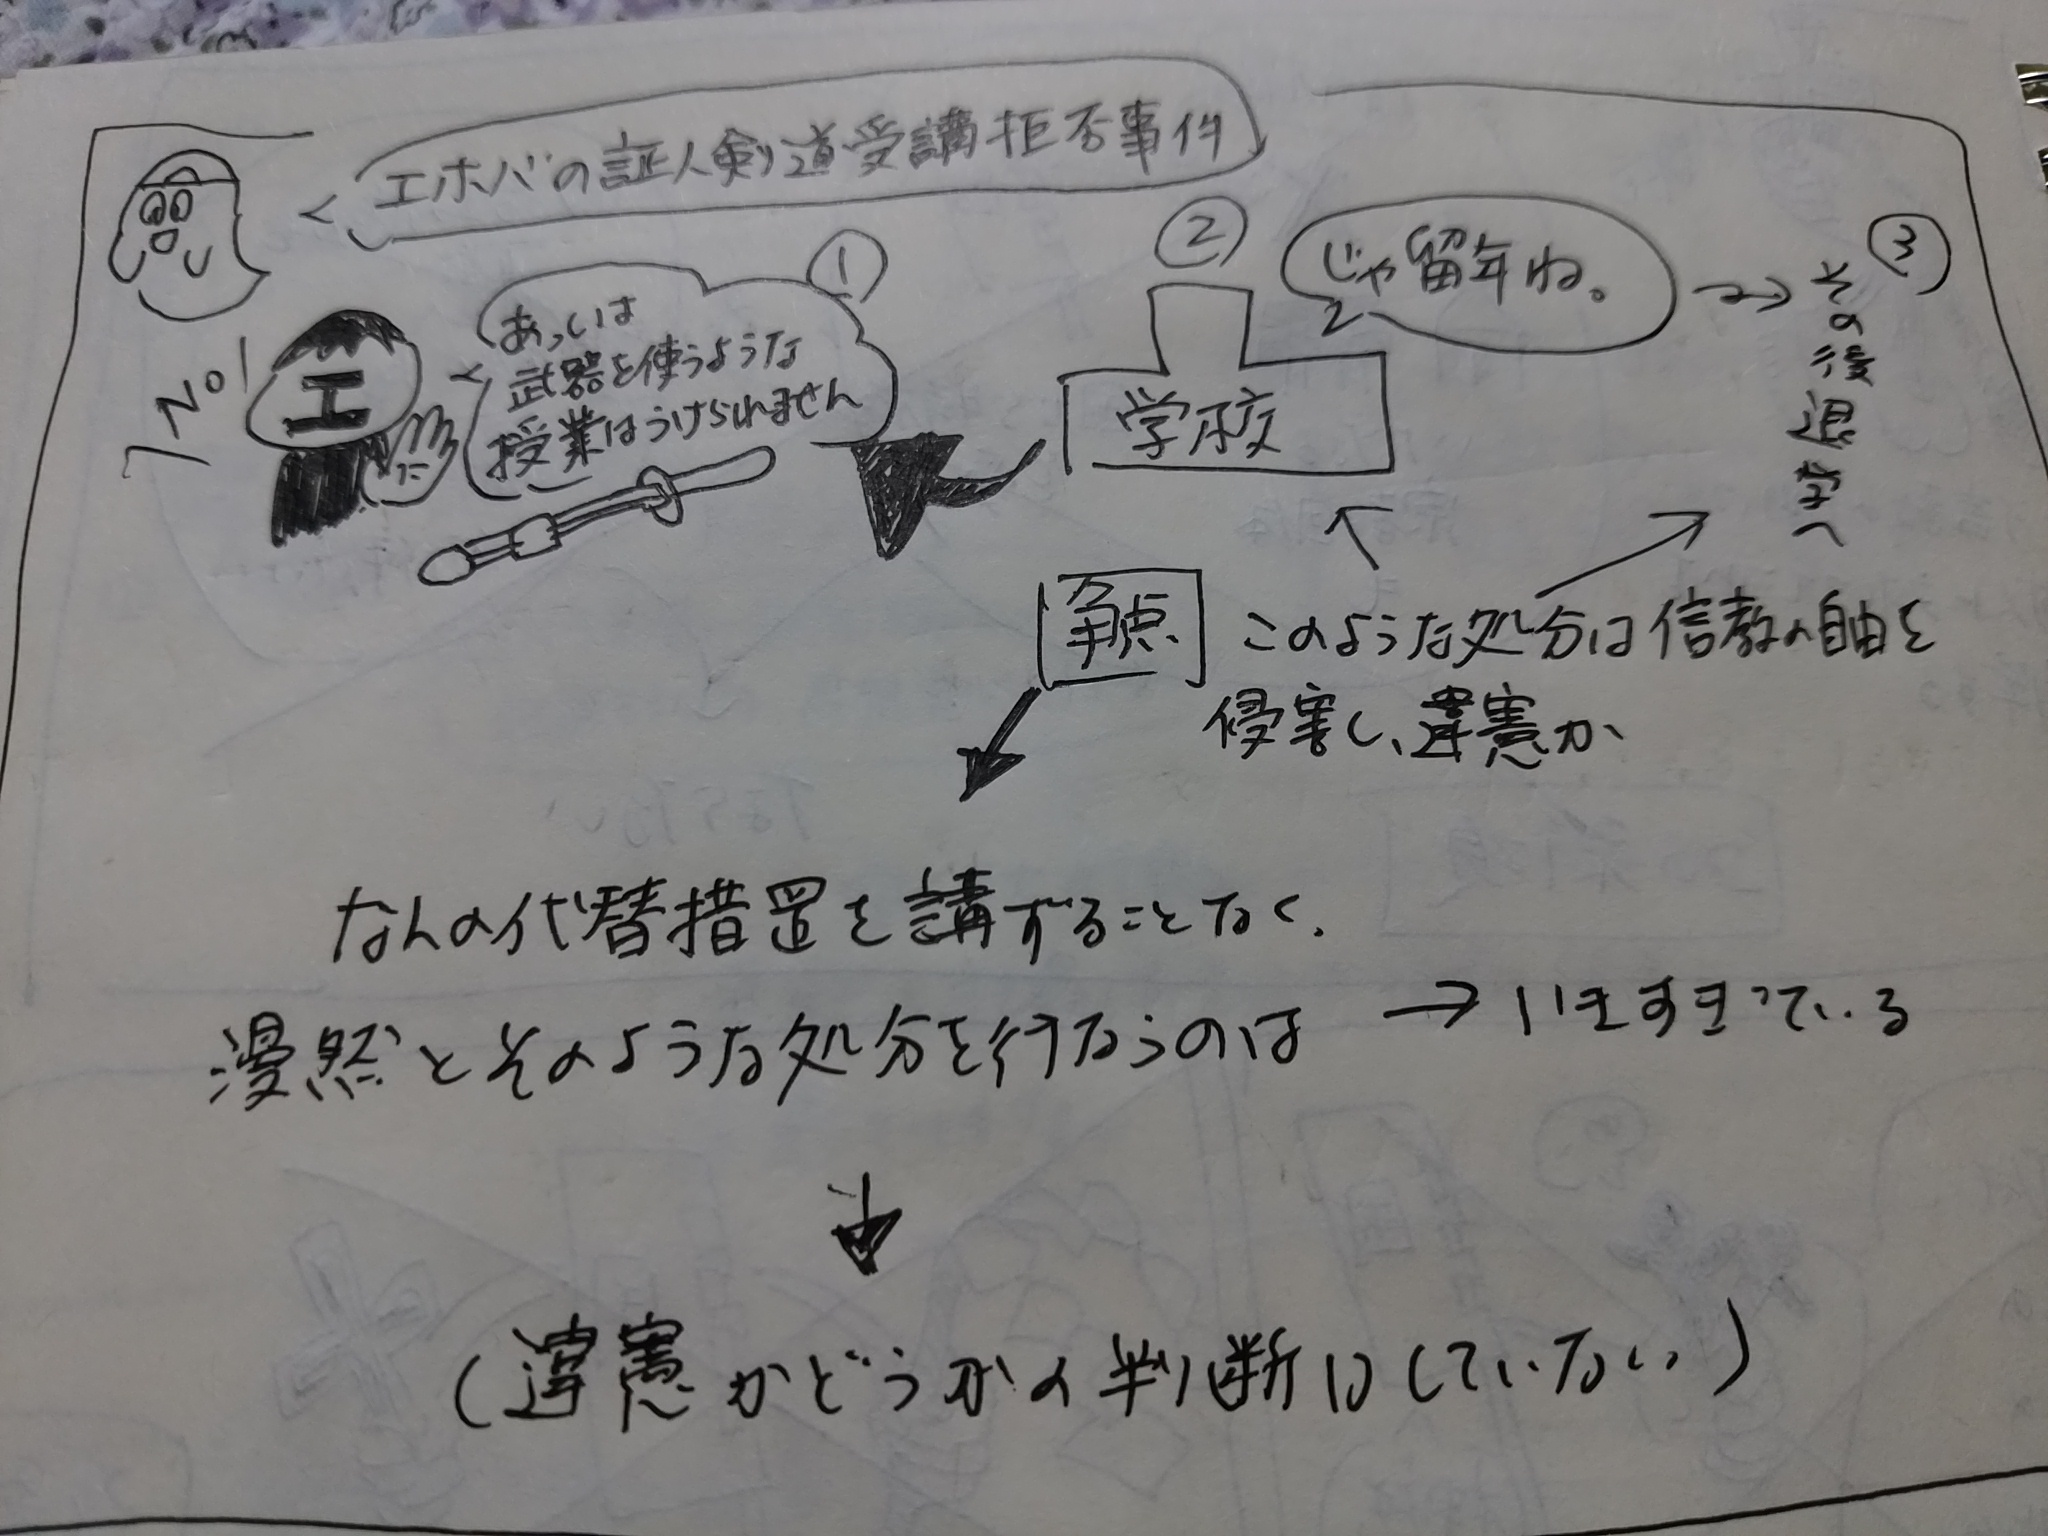 エホバの証人剣道受講拒否事件
①
あっしは
武器を使うような
授業はうけられません
No!
エ
②
じゃ留年ね。
学校
③
その後退学へ
争点
このような処分は信教の自由を
侵害し、違憲か
なんの代替措置を講ずることなく、
漫然とそのような処分を行なうのは
→いきすぎている
(違憲かどうかの判断はしていない)